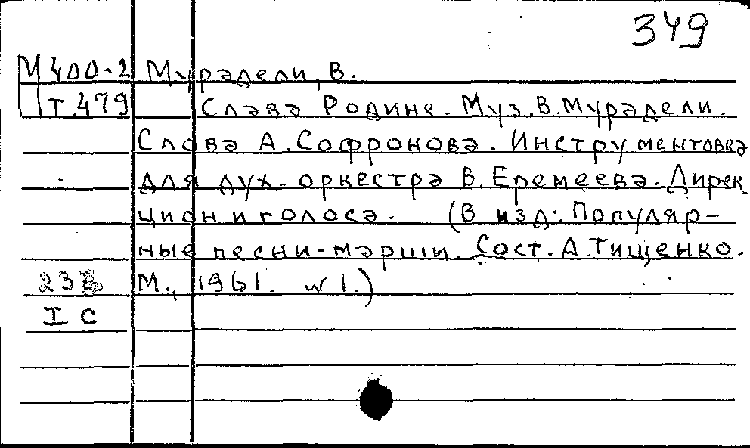 349
М400-2 Мурадели, В.
Т.479 Слава Родине. Муз. В. Мурадели.
Слова А. Софронова. Инструментовка
для дух. оркестра В. Еремеева. Дирек
цион и голоса. (В изд: Популяр-
ные песни-марши. Сост. А. Тищенко.
М., 1961. №1.)
I C